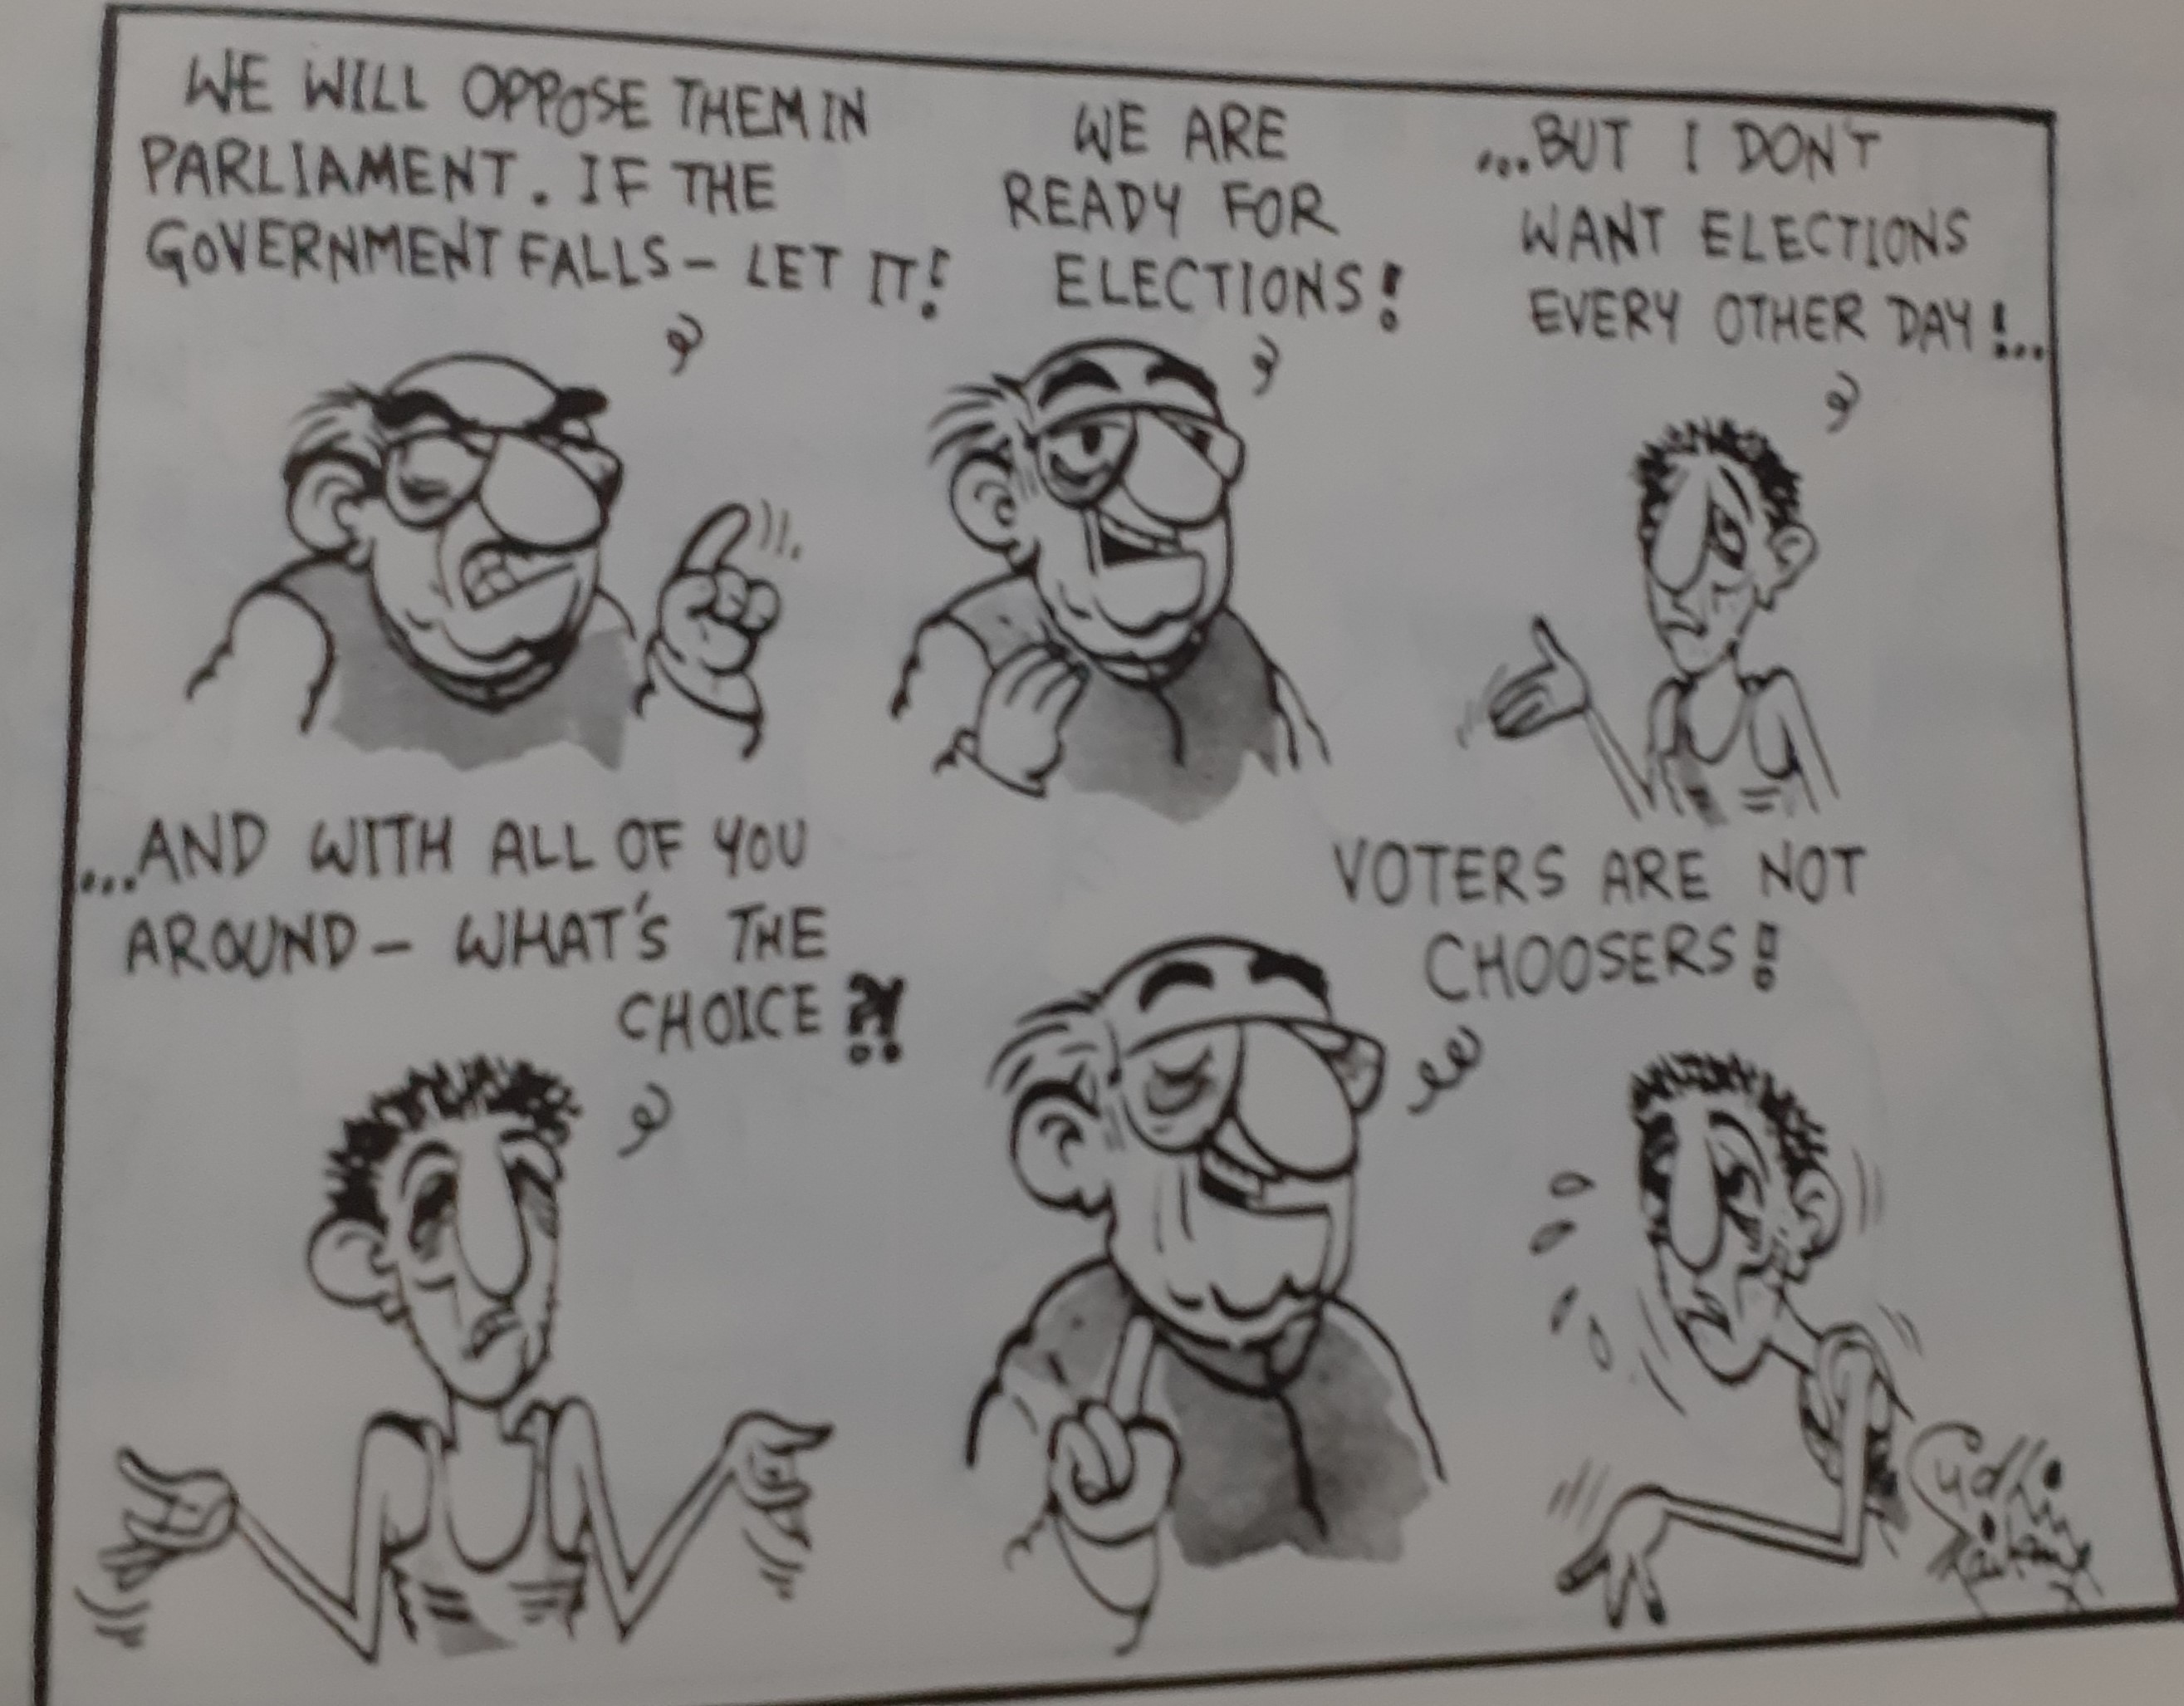 WE WILL OPPOSE THEM IN
PARLIAMENT. IF THE
GOVERNMENT FALLS – LET IT!
WE ARE
READY FOR
ELECTIONS!
...BUT I DON'T
WANT ELECTIONS
EVERY OTHER DAY!...
...AND WITH ALL OF YOU
AROUND – WHAT'S THE
CHOICE?!
VOTERS ARE NOT
CHOOSERS!